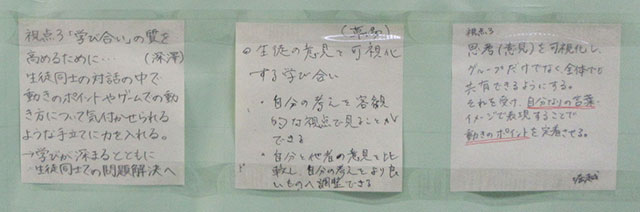 視点3「学び合い」の質を
高めるために… (深澤)
生徒同士の対話の中で
動きのポイントやゲームでの動
き方について気付かせられる
ような手立てに力を入れる。
→学びが深まるとともに
生徒同士での問題解決へ
○生徒の意見を可視化
する学び合い
・自分の考えを客観
的な視点で見ることが
できる
・自分と他者の意見を比
較し、自分の考えをより良
いものへ調整できる
視点3
思考(意見)を可視化し、
グループだけでなく、全体でも
共有できるようにする。
それを受け、自分なりの言葉、
イメージで表現することで
動きのポイントを定着させる。